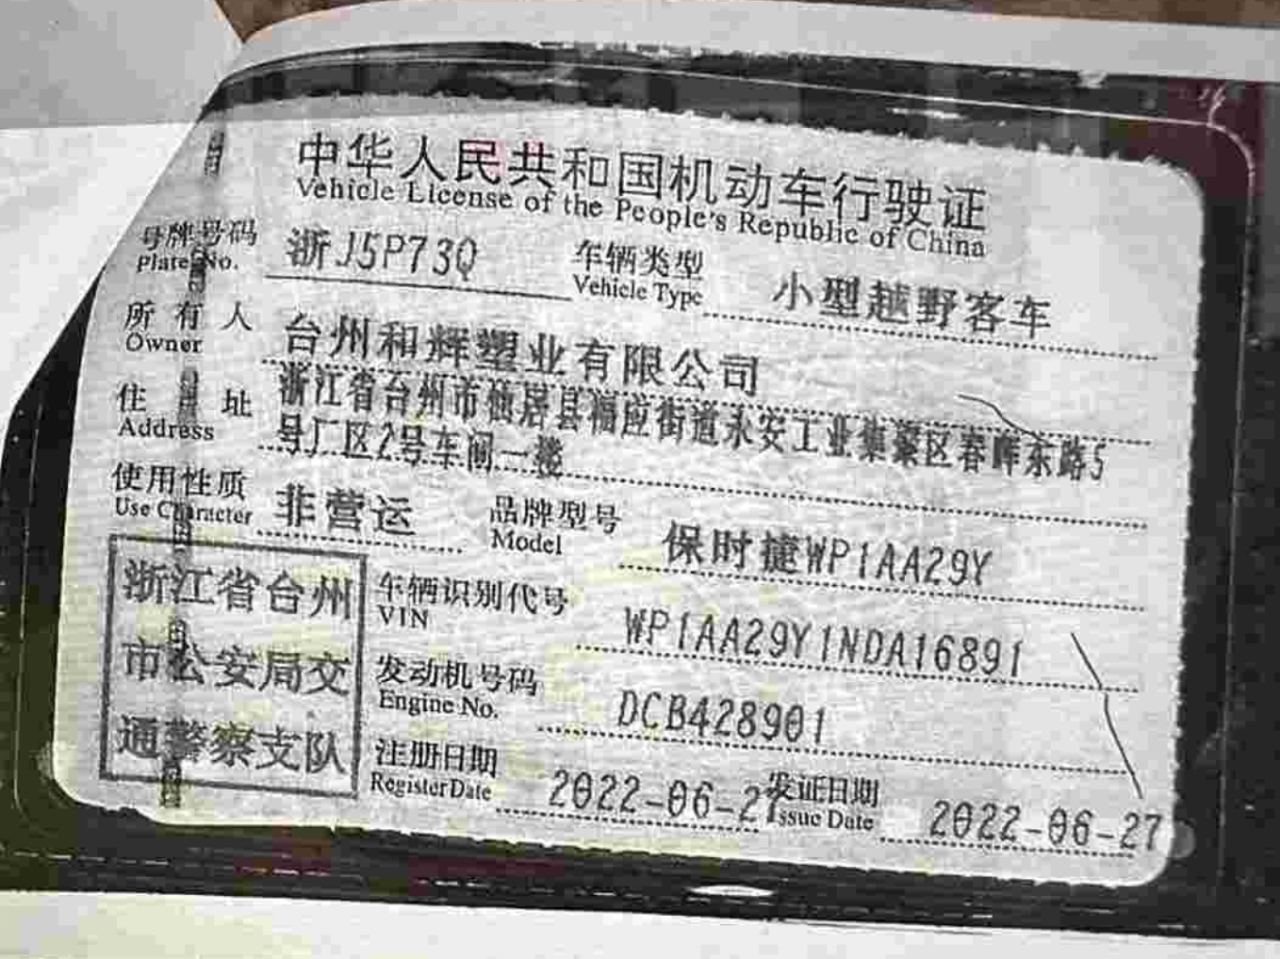 中华人民共和国机动车行驶证
Vehicle License of the People's Republic of China
号牌号码 浙J5P73Q 车辆类型 小型越野客车
Plate No. Vehicle Type
所有人 台州和辉塑业有限公司
Owner
住址 浙江省台州市仙居县福应街道永安工业集聚区春晖东路5
Address 号厂区2号车间一楼
使用性质 非营运 品牌型号 保时捷WP1AA29Y
Use Character Model
浙江省台州
市公安局交
通警察支队
车辆识别代号 WP1AA29Y1NDA16891
VIN
发动机号码 DCB428901
Engine No.
注册日期 2022-06-27 发证日期 2022-06-27
Register Date Issue Date